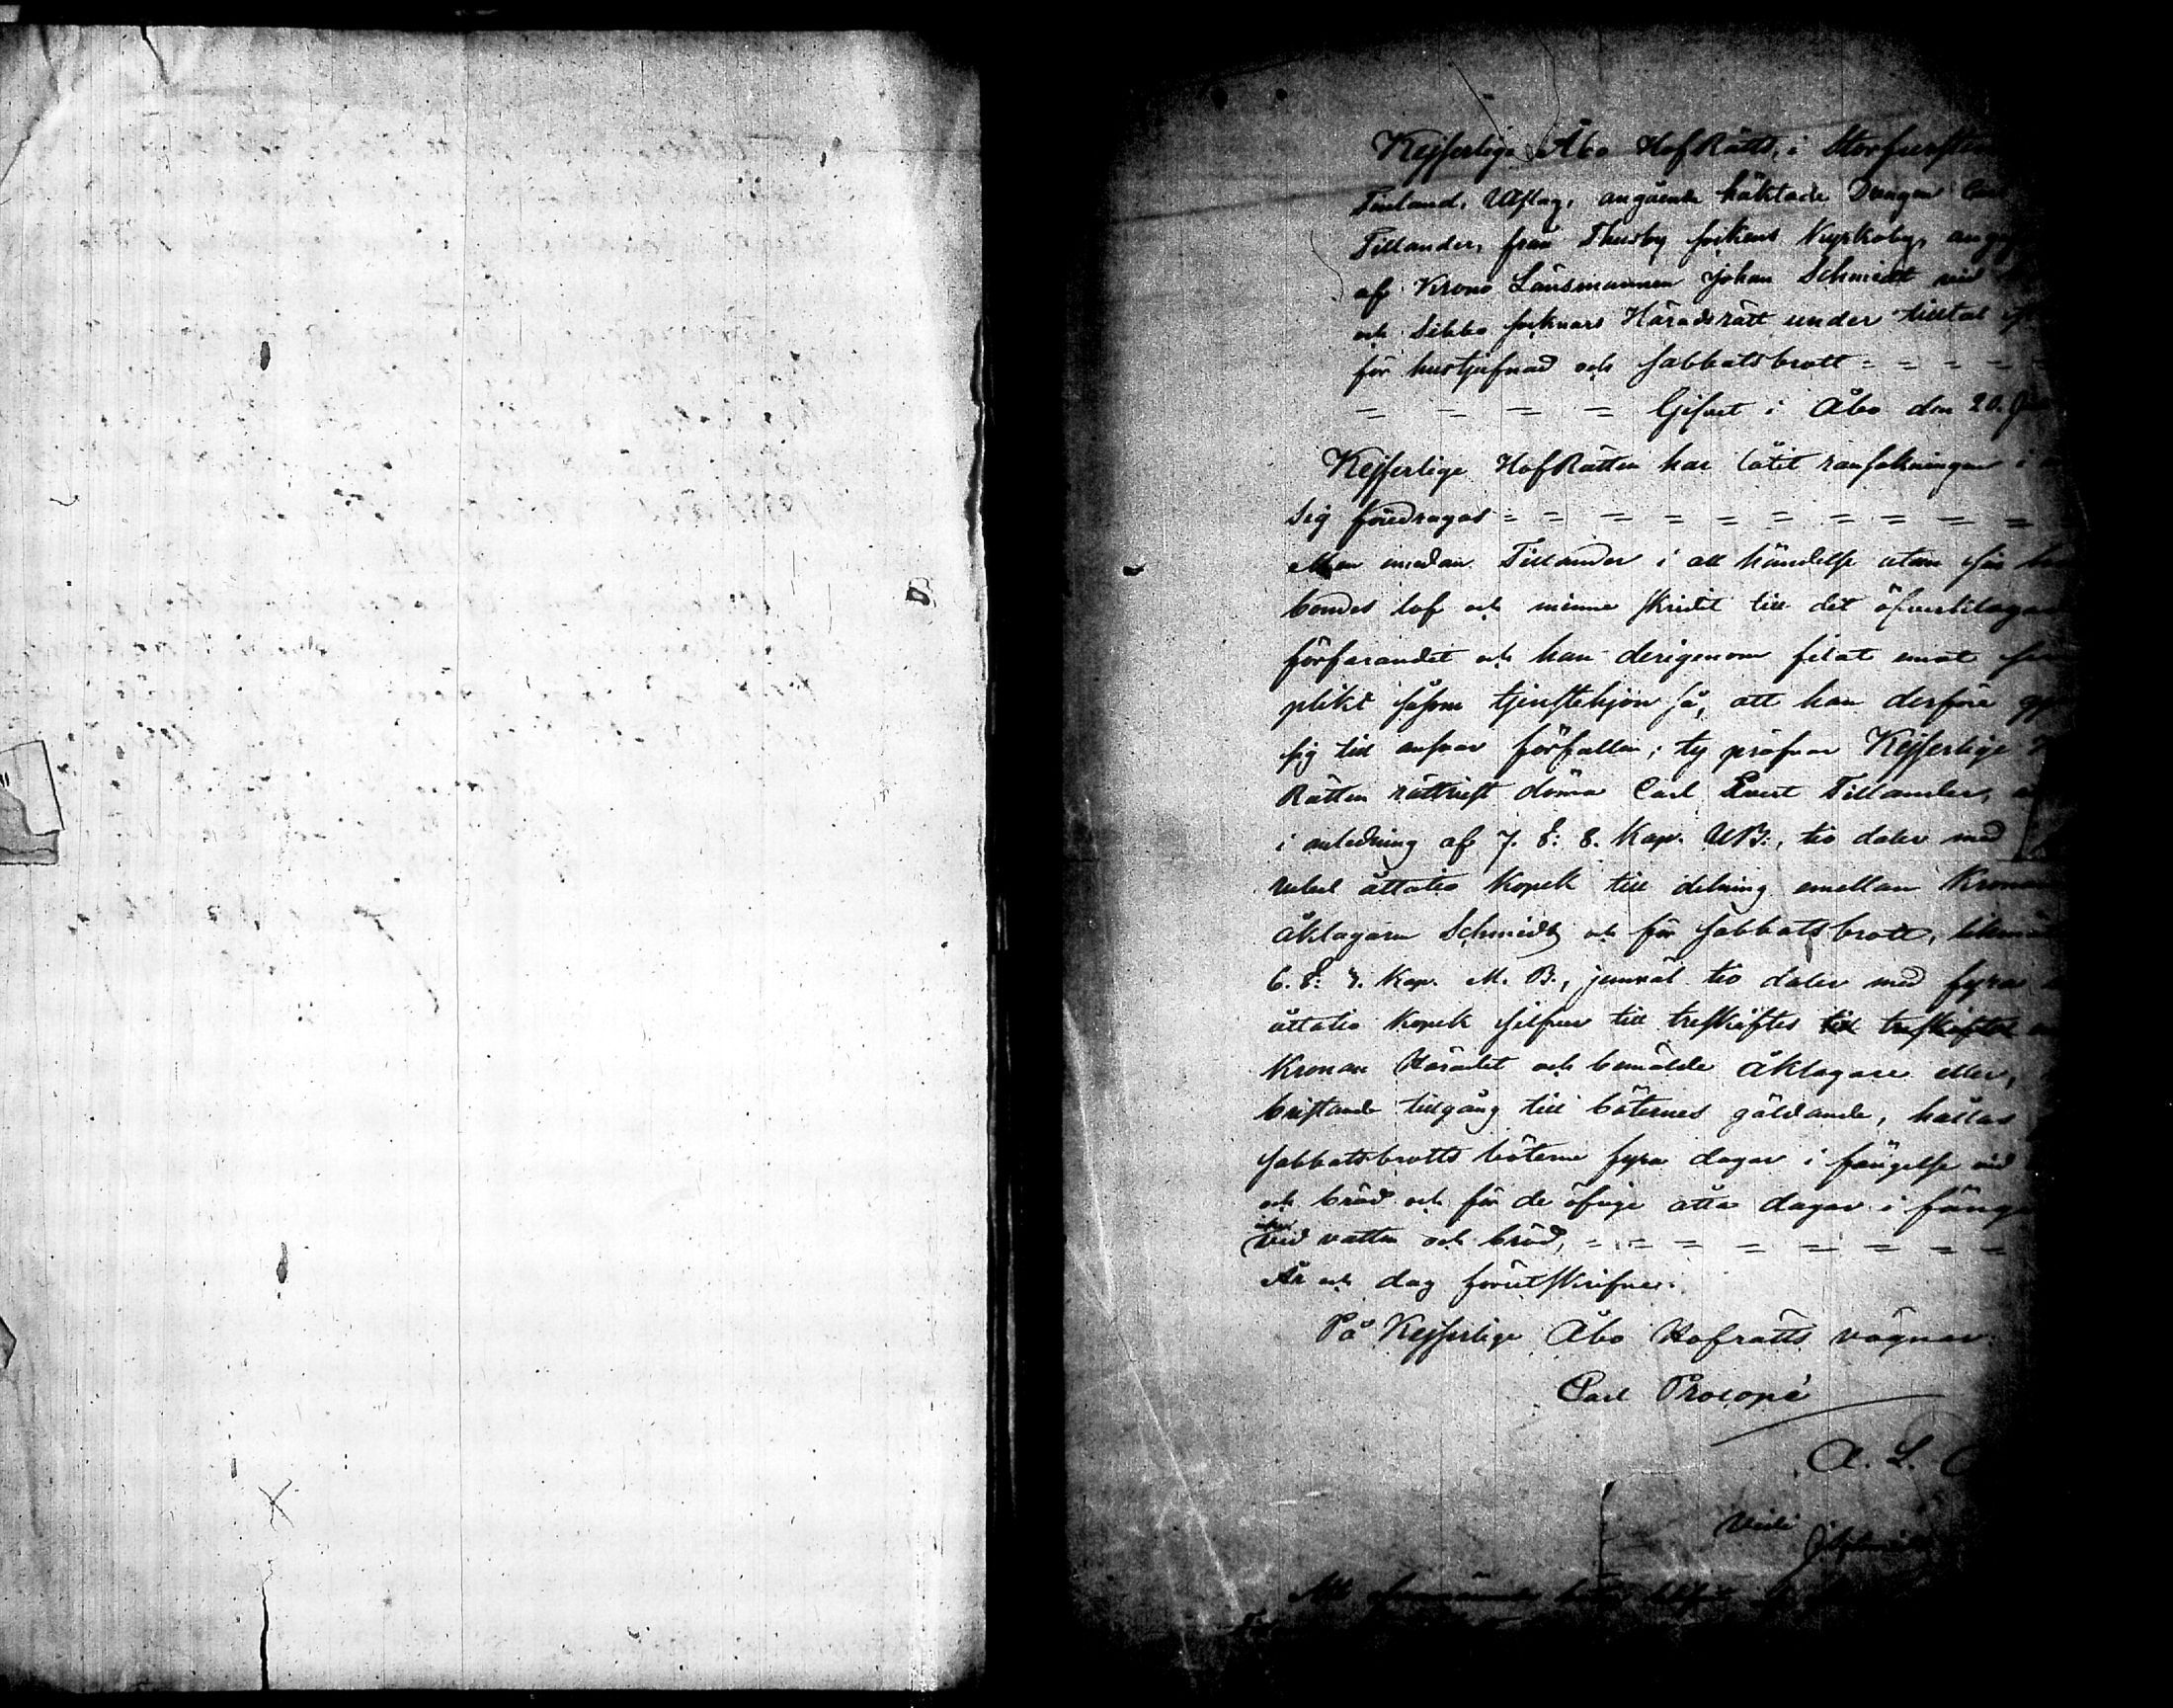 Kejserlige Åbo HofRätts, i Storfursten
Finland, Utslag, angående häktade Drängen Carl
Tillander, från Thusby sockens Kyrkoby, angif
af Krono Länsmannen Johan Schmidt vid
och Sibbo socknars Häradsrätt under tilltal
för hustjufnad och sabbatsbrott = = = = =
= = = = Gifvet i Åbo den 20.
Kejserlige HofRätten har låtit ransakningen i
sig föredragas = = = = = = = = = = =
Men emedan Tillander i all händelse utan sin
bondes lof och minne skridit till det öfverklagade
förfarandet och han derigenom felat emot sin
plikt såsom tjenstehjon så, att han derföre
sig till ansvar förfallen; ty pröfvar Kejserlige
Rätten rättvist döma Carl Evert Tillander,
i anledning af 7. §: 8. Kap. UB:, tio daler med
rubel åttatio kopek till delning emellan Kronan
åklagaren Schmidt och för sabbatsbrott, likmäti
6. §: 3. Kap. M. B., jemväl tio daler med fyra
åttatio kopek silfver till treskiftes till treskiftes
Kronan Häradet och bemälde åklagare eller,
bristande tillgång till böternes gäldande, hållas
sabbatsbrotts böterne fyra dagar i fängelse vid
och bröd och för de öfrige åtta dagar i fänge
vid vatten och bröd, = = = = = = = =
År och dag förutskrifne.
På Kejserlige Åbo Hofrätts vägnar.
Carl Procopé
A. L.